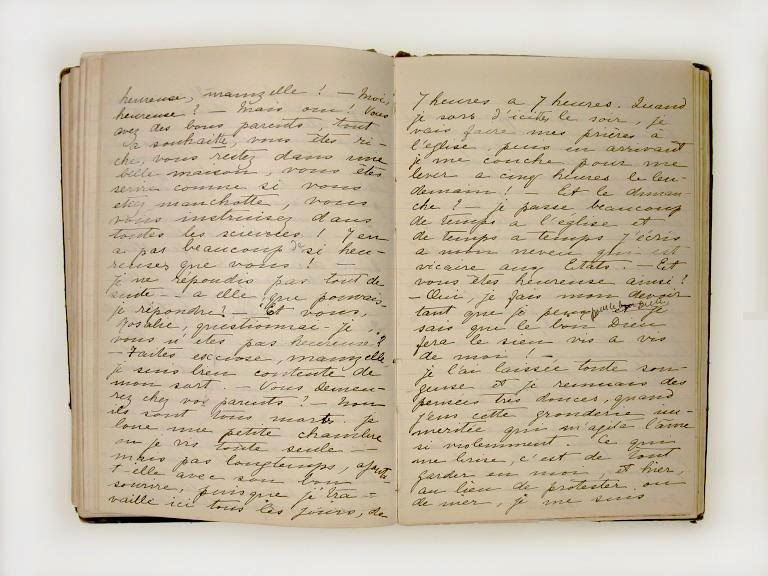 heureuse, mamzelle ! – Moi,
heureuse ? – Mais oui ! Vous
avez des bons parents, tout
à souhaitte, vous êtes ri-
che, vous restez dans une
belle maison, vous êtes
servie comme si vous
étiez manchotte, vous
vous instruisez dans
toutes les sciences ! Y en
a pas beaucoup de si heu-
reuses que vous ! –
je ne répondis pas tout de
suite – à elle, que pouvais-
je répondre ? – Et vous,
Rosalie, questionnai-je,
vous n'êtes pas heureuse ?
– Faites excuse, mamzelle,
je suis bien contente de
mon sort. – Vous demeu-
rez chez vos parents ? – Non
ils sont tous morts. je
loue une petite chambre
où je vis toute seule –
mais pas longtemps, ajouta
t'elle avec son bon
sourire, puisque je tra-
vaille ici tous les jours, de
7 heures à 7 heures. Quand
je sors d'ici le soir, je
vais faire mes prières à
l'église, puis en arrivant
je me couche pour me
lever à cinq heures le len-
demain ! – Et le diman-
che ? – je passe beaucoup
de temps à l'église et
de temps à temps j'écris
à mon neveu qui est
vicaire aux Etats. – Et
vous êtes heureuse ainsi ?
– Oui, je fais mon devoir
tant que je peux pour le bon Dieu et je
sais que le bon Dieu
fera le sien vis à vis
de moi ! –
je l'ai laissée toute son-
geuse et je remuais des
pensées très douces, quand
j'eus cette gronderie im-
méritée qui m'agita l'âme
si violemment. Ce qui
me brise, c'est de tout
garder en moi, et hier,
au lieu de protester ou
de nier, je me suis